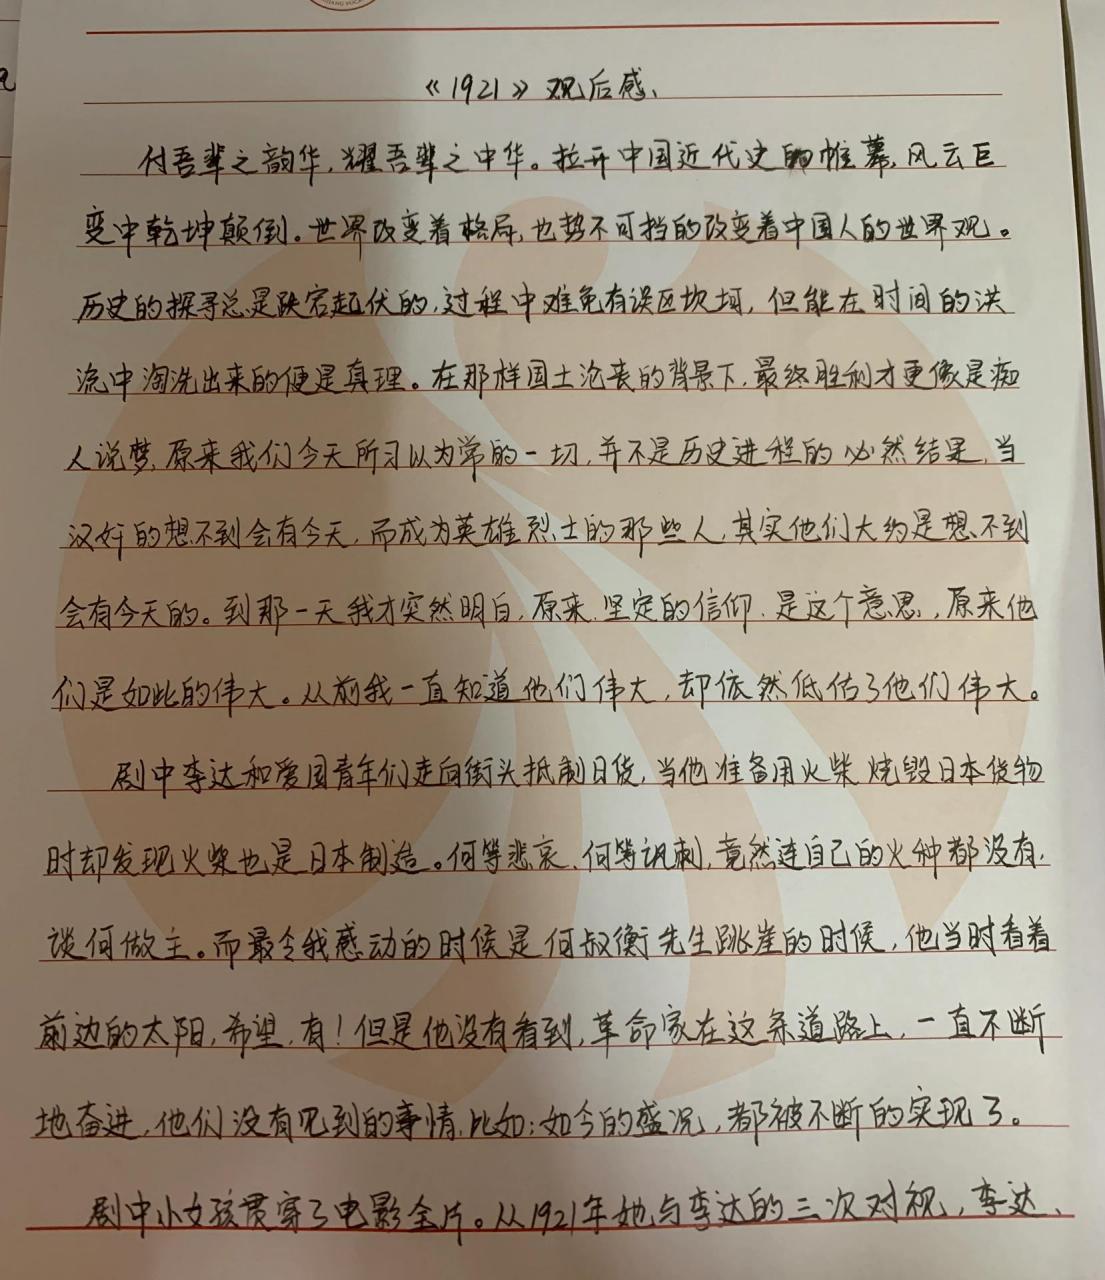 《1921》观后感、
付吾辈之韵华,耀吾辈之中华。拉开中国近代史的帷幕,风云巨
变中乾坤颠倒。世界改变着格局,也势不可挡的改变着中国人的世界观。
历史的探寻总是跌宕起伏的,过程中难免有误区坎坷,但能在时间的洪
流中淘洗出来的便是真理。在那样国土沦丧的背景下,最终胜利才更像是痴
人说梦,原来我们今天所习以为常的一切,并不是历史进程的必然结果,当
汉奸的想不到会有今天,而成为英雄烈士的那些人,其实他们大约是想不到
会有今天的。到那一天我才突然明白,原来.坚定的信仰.是这个意思,原来他
们是如此的伟大。从前我一直知道他们伟大,却依然低估了他们伟大。
剧中李达和爱国青年们走向街头抵制日货,当他准备用火柴烧毁日本货物
时却发现火柴也是日本制造。何等悲哀、何等讽刺,竟然连自己的火种都没有,
谈何做主。而最令我感动的时候是何叔衡先生跳崖的时候,他当时看着
前边的太阳,希望,有!但是他没有看到,革命家在这条道路上,一直不断
地奋进,他们没有见到的事情,比如:如今的盛况,都被不断的实现了。
剧中小女孩贯穿了电影全片。从1921年她与李达的三次对视,李达、